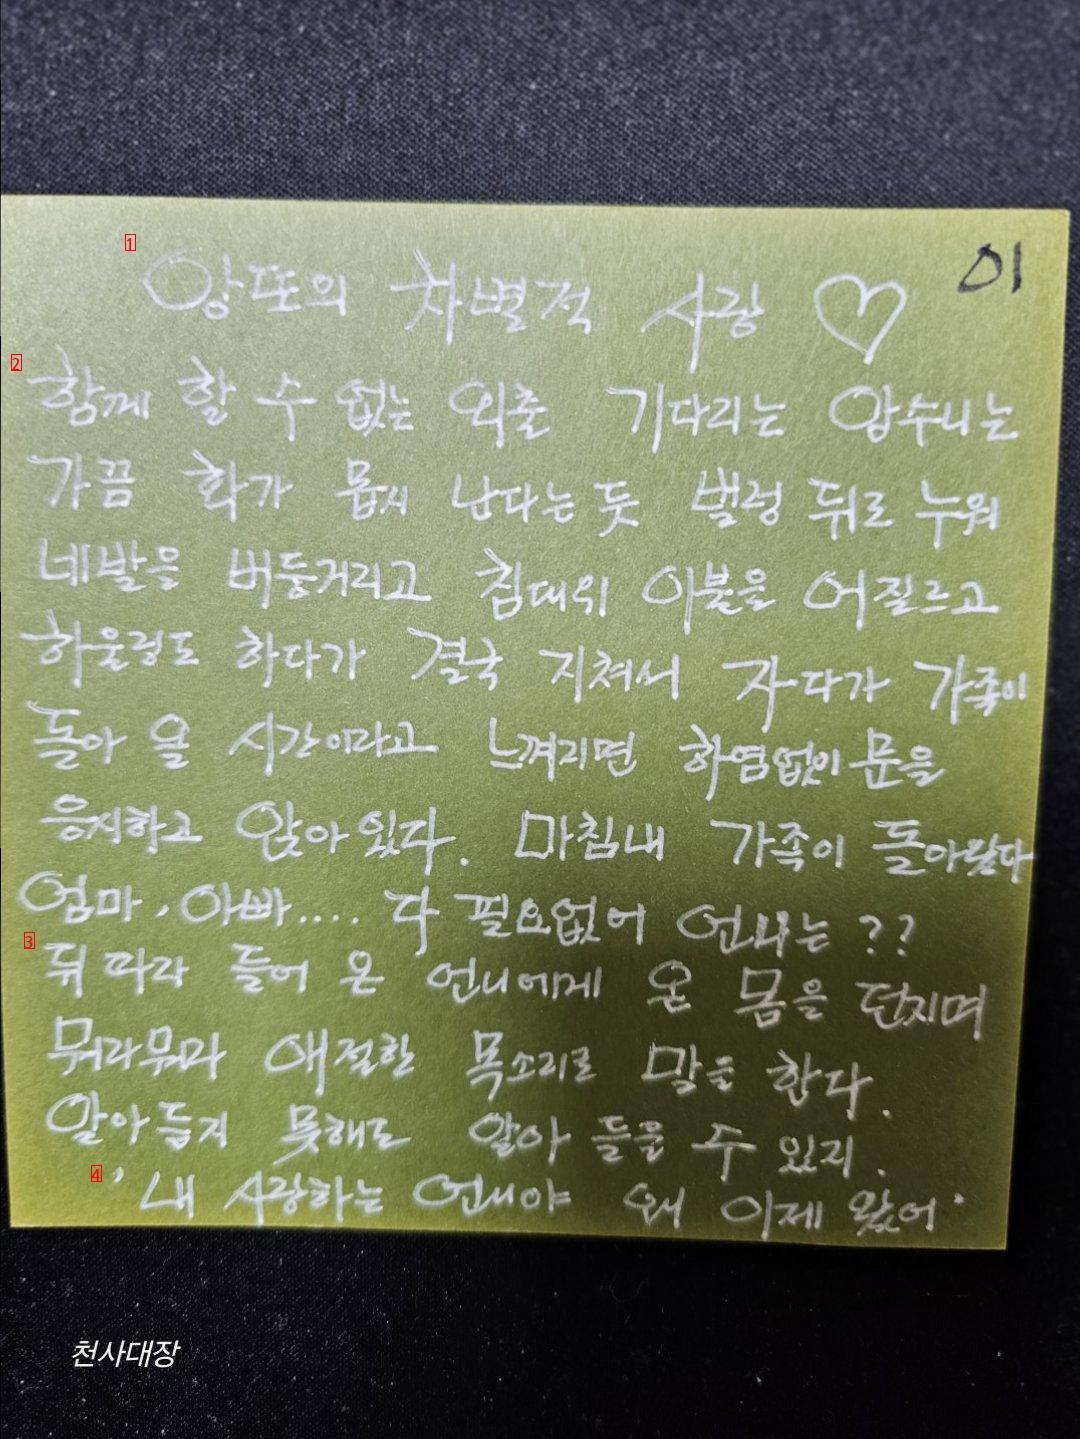 앙또의 차별적 사랑 ♡
01
함께 할 수 없는 외출 기다리는 암수니는
가끔 화가 몹시 난다는 듯 벌렁 뒤로 누워
네발을 버둥거리고 침대위 이불을 어질르고
하울링도 하다가 결국 지쳐서 자다가 가족이
돌아 올 시간이라고 느껴지면 하염없이 문을
응시하고 앉아 있다. 마침내 가족이 돌아왔다
엄마, 아빠.... 다 필요없어 언니는 ??
뒤 따라 들어 온 언니에게 온 몸을 던지며
뭐라뭐라 애절한 목소리로 말을 한다.
알아 듣지 못해도 알아 들을 수 있지.
' 내 사랑하는 언니야 왜 이제 왔어 '
천사대장
1
2
3
4